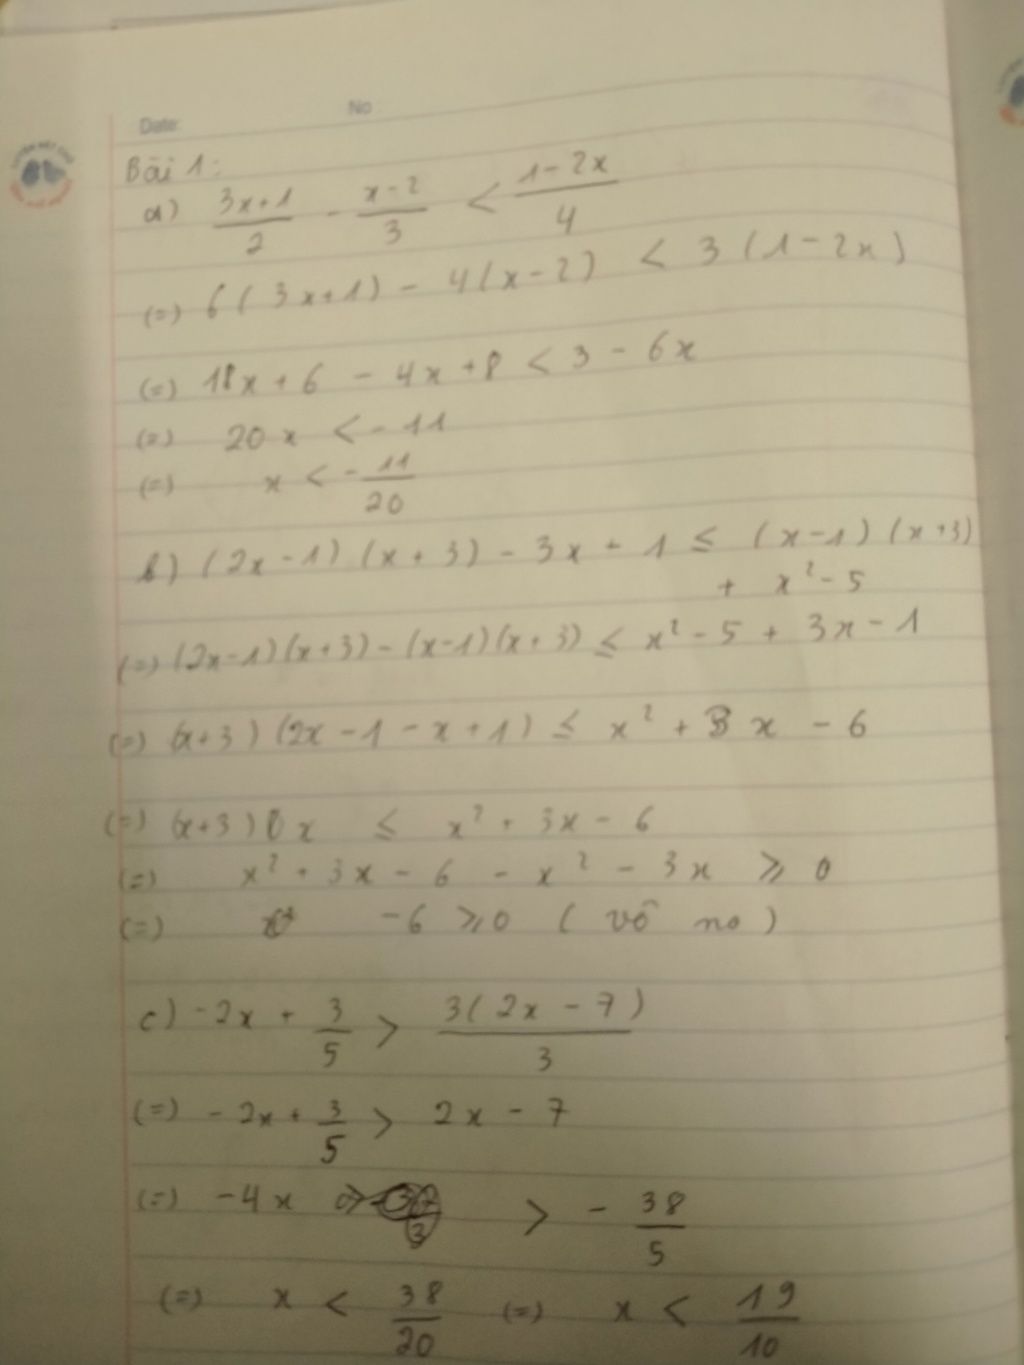 Date: No
Bài 1:
a) \frac{3x+1}{2} - \frac{x-2}{3} < \frac{1-2x}{4}
(=) 6(3x+1) - 4(x-2) < 3(1-2x)
(=) 18x+6 - 4x+8 < 3 - 6x
(=) 20x < -11
(=) x < -\frac{11}{20}
b) (2x-1)(x+3) - 3x + 1 ≤ (x-1)(x+3)
+ x² - 5
(=) (2x-1)(x+3) - (x-1)(x+3) ≤ x² - 5 + 3x - 1
(=) (x+3)(2x - 1 - x + 1) ≤ x² + 3x - 6
(=) (x+3) x ≤ x² + 3x - 6
(=) x² + 3x - 6 - x² - 3x ≥ 0
(=) -6 ≥ 0 (vô no)
c) -2x + \frac{3}{5} > \frac{3(2x-7)}{3}
(=) -2x + \frac{3}{5} > 2x - 7
(=) -4x > -\frac{38}{5}
(=) x < \frac{38}{20} (=) x < \frac{19}{10}